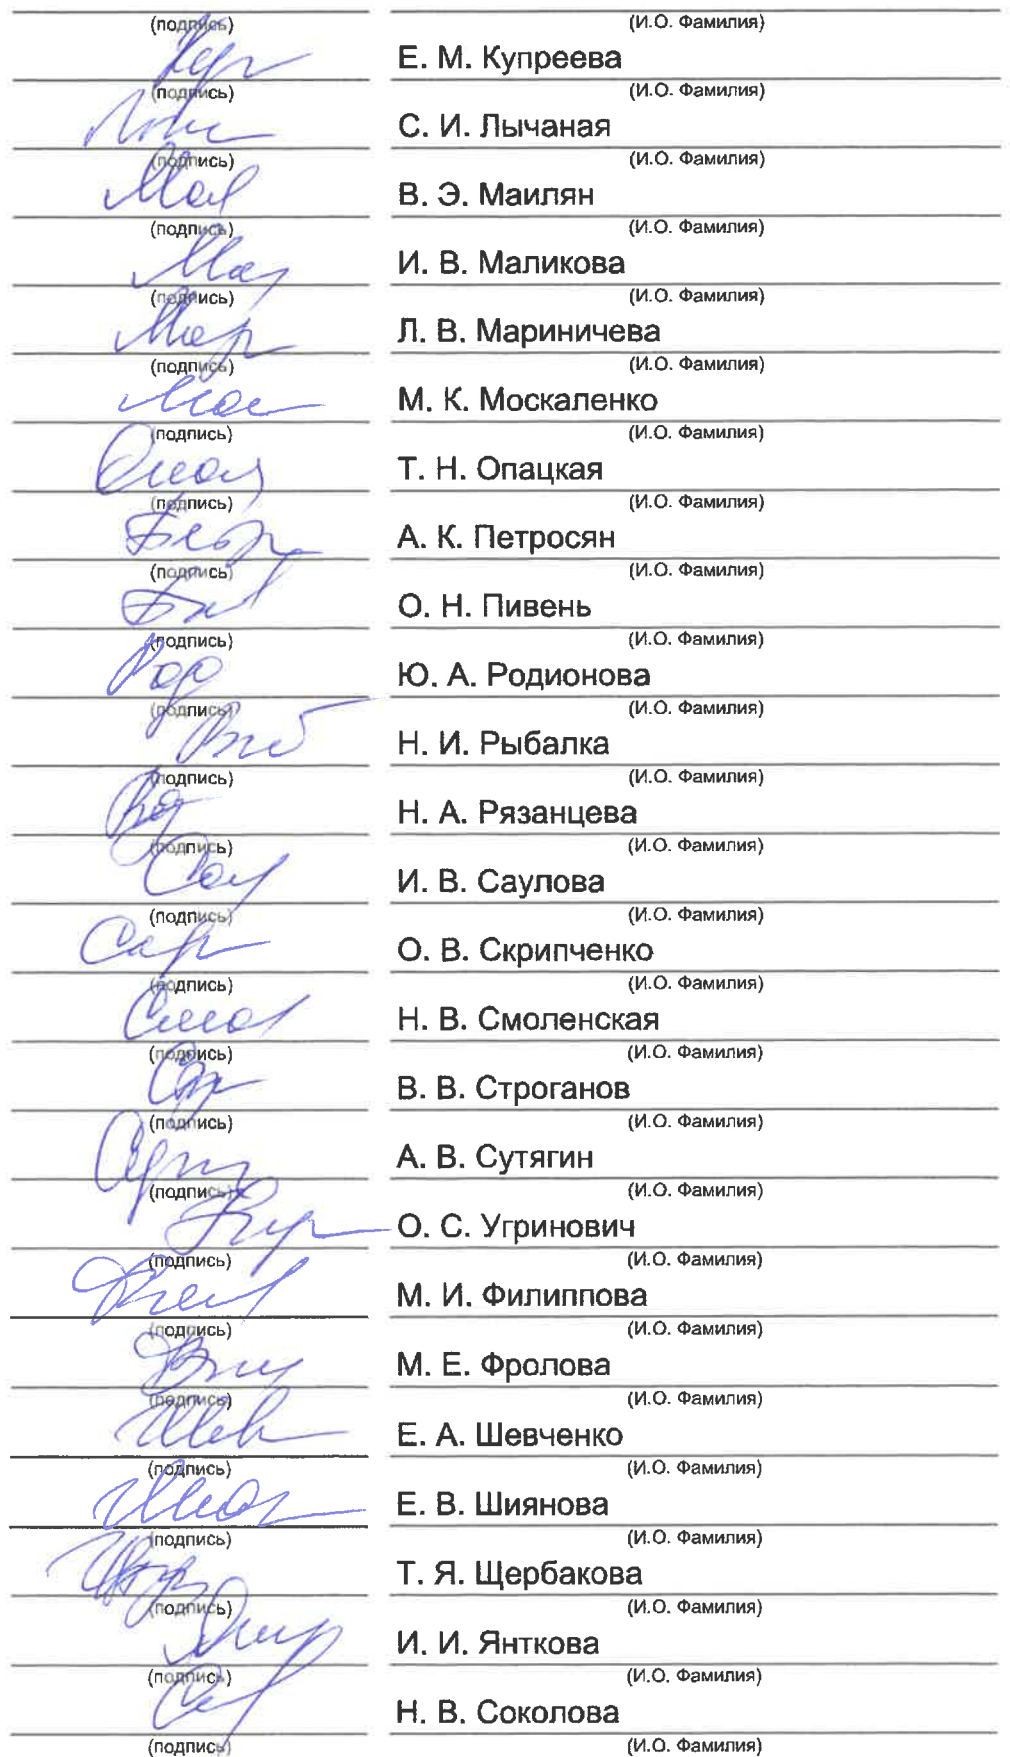 (подпись) (И.О. Фамилия)
Е. М. Купреева
(подпись) (И.О. Фамилия)
С. И. Лычаная
(подпись) (И.О. Фамилия)
В. Э. Маилян
(подпись) (И.О. Фамилия)
И. В. Маликова
(подпись) (И.О. Фамилия)
Л. В. Мариничева
(подпись) (И.О. Фамилия)
М. К. Москаленко
(подпись) (И.О. Фамилия)
Т. Н. Опацкая
(подпись) (И.О. Фамилия)
А. К. Петросян
(подпись) (И.О. Фамилия)
О. Н. Пивень
(подпись) (И.О. Фамилия)
Ю. А. Родионова
(подпись) (И.О. Фамилия)
Н. И. Рыбалка
(подпись) (И.О. Фамилия)
Н. А. Рязанцева
(подпись) (И.О. Фамилия)
И. В. Саулова
(подпись) (И.О. Фамилия)
О. В. Скрипченко
(подпись) (И.О. Фамилия)
Н. В. Смоленская
(подпись) (И.О. Фамилия)
В. В. Строганов
(подпись) (И.О. Фамилия)
А. В. Сутягин
(подпись) (И.О. Фамилия)
О. С. Угринович
(подпись) (И.О. Фамилия)
М. И. Филиппова
(подпись) (И.О. Фамилия)
М. Е. Фролова
(подпись) (И.О. Фамилия)
Е. А. Шевченко
(подпись) (И.О. Фамилия)
Е. В. Шиянова
(подпись) (И.О. Фамилия)
Т. Я. Щербакова
(подпись) (И.О. Фамилия)
И. И. Янткова
(подпись) (И.О. Фамилия)
Н. В. Соколова
(подпись) (И.О. Фамилия)